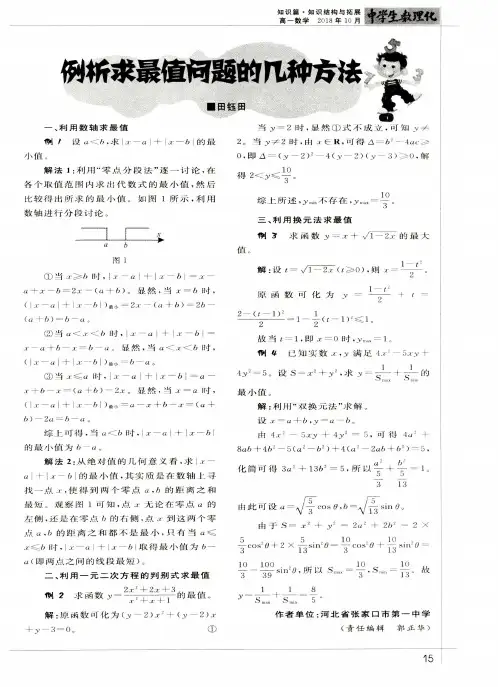 知识篇·知识结构与拓展
高一数学 2018年10月
中学生数理化
例析求最值问题的几种方法
■田钰田
一、利用数轴求最值
例1 设a<b,求|x-a|+|x-b|的最
小值。
解法1:利用“零点分段法”逐一讨论,在
各个取值范围内求出代数式的最小值,然后
比较得出所求的最小值。如图1所示,利用
数轴进行分段讨论。
a b x
图1
①当x≥b时,|x-a|+|x-b|=x-
a+x-b=2x-(a+b)。显然,当x=b时,
(|x-a|+|x-b|)最小=2x-(a+b)=2b-
(a+b)=b-a。
②当a<x<b时,|x-a|+|x-b|=
x-a+b-x=b-a。显然,当a<x<b时,
(|x-a|+|x-b|)最小=b-a。
③当x≤a时,|x-a|+|x-b|=a-
x+b-x=(a+b)-2x。显然,当x=a时,
(|x-a|+|x-b|)最小=a-x+b-x=(a+
b)-2a=b-a。
综上可得,当a<b时,|x-a|+|x-b|
的最小值为b-a。
解法2:从绝对值的几何意义看,求|x-
a|+|x-b|的最小值,其实质是在数轴上寻
找一点x,使得到两个零点a,b的距离之和
最短。观察图1可知,点x无论在零点a的
左侧,还是在零点b的右侧,点x到这两个零
点a,b的距离之和都不是最小,只有当a≤
x≤b时,|x-a|+|x-b|取得最小值为b-
a(即两点之间的线段最短)。
二、利用一元二次方程的判别式求最值
例2 求函数y=(2x²+2x+3)/(x²+x+1)的最值。
解:原函数可化为(y-2)x²+(y-2)x
+y-3=0。 ①
当y=2时,显然①式不成立,可知y≠
2。当y≠2时,由x∈R,可得Δ=b²-4ac≥
0,即Δ=(y-2)²-4(y-2)(y-3)≥0,解
得2<y≤10/3。
综上所述,ymin不存在,ymax=10/3。
三、利用换元法求最值
例3 求函数y=x+√(1-2x)的最大
值。
解:设t=√(1-2x)(t≥0),则x=(1-t²)/2。
原函数可化为y=(1-t²)/2+t=
(2-(t-1)²)/2=1-1/2(t-1)²≤1。
故当t=1,即x=0时,ymax=1。
例4 已知实数x,y满足4x²-5xy+
4y²=5。设S=x²+y²,求y=1/Smax+1/Smin的
最小值。
解:利用“双换元法”求解。
设x=a+b,y=a-b。
由4x²-5xy+4y²=5,可得4a²+
8ab+4b²-5(a²-b²)+4(a²-2ab+b²)=5,
化简可得3a²+13b²=5,所以a²/(5/3)+b²/(5/13)=1。
由此可设a=√(5/3)cosθ,b=√(5/13)sinθ。
由于S=x²+y²=2a²+2b²=2×
5/3cos²θ+2×5/13sin²θ=10/3cos²θ+10/13sin²θ=
10/3-100/39sin²θ,所以Smax=10/3,Smin=10/13。故
y=1/Smax+1/Smin=8/5。
作者单位:河北省张家口市第一中学
(责任编辑 郭正华)
15